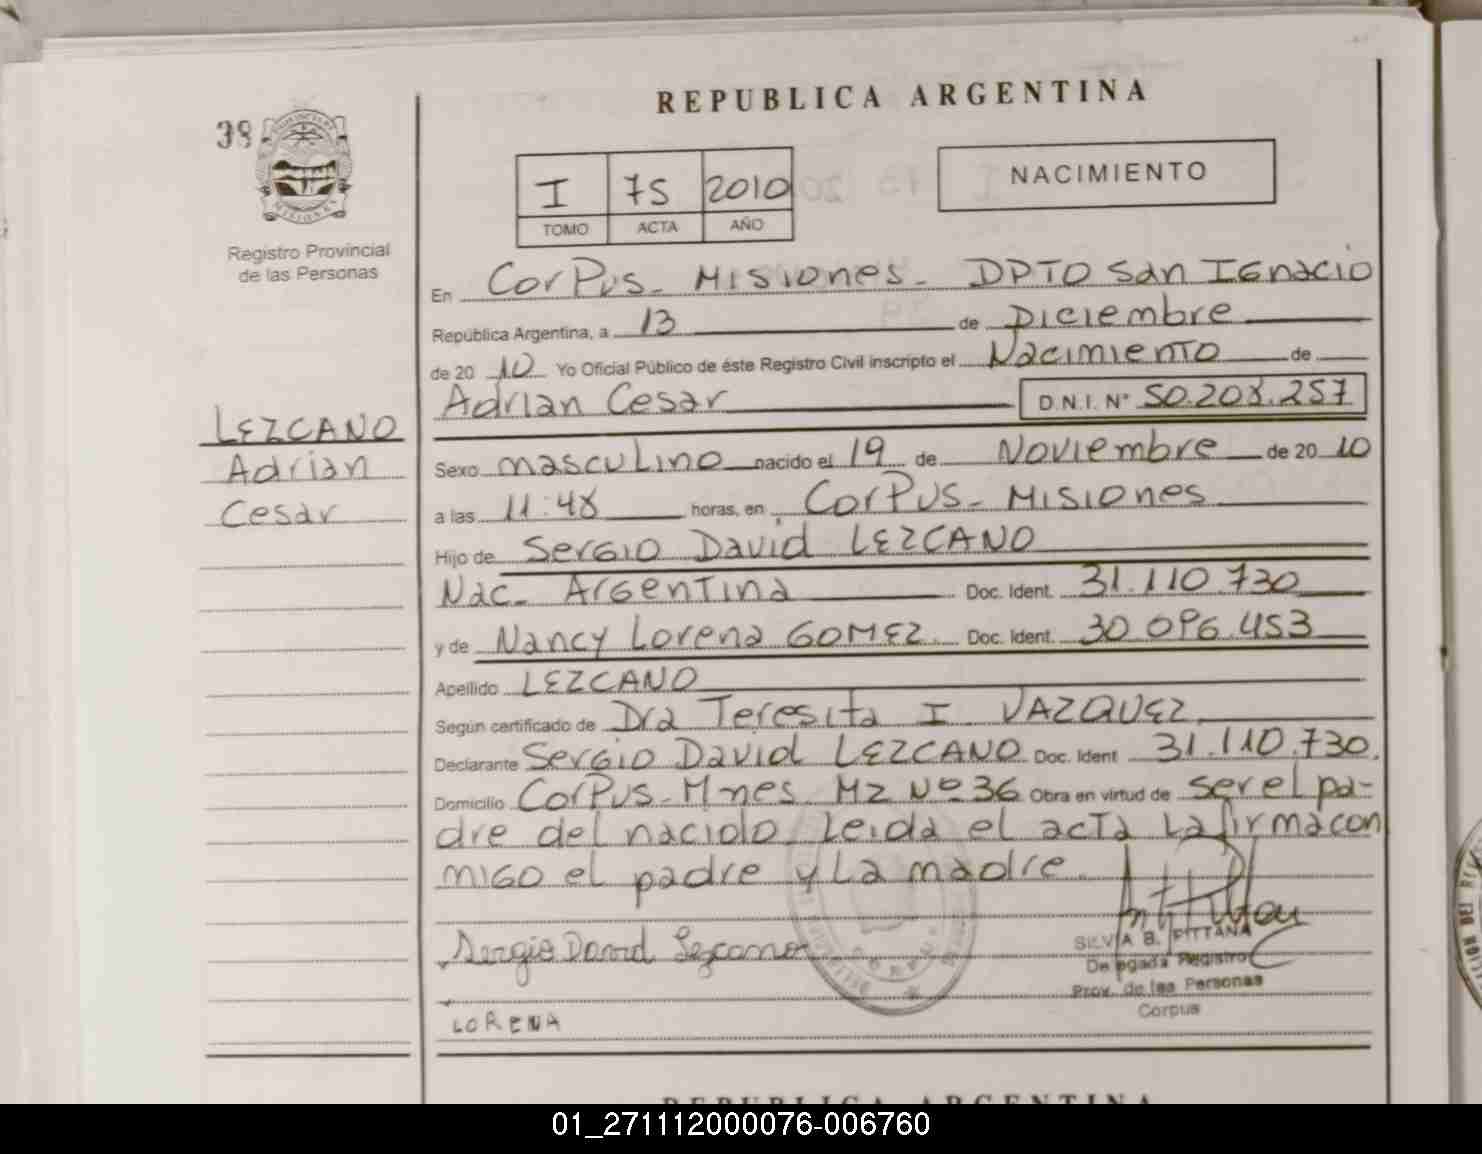 REPUBLICA ARGENTINA
38
I 75 2010
TOMO ACTA AÑO
NACIMIENTO
PROVINCIA DE
MISIONES
Registro Provincial
de las Personas
LEZCANO
Adrian
Cesar
En Corpus - Misiones - DPTO San Ignacio
República Argentina, a 13 de Diciembre
de 20 10 Yo Oficial Público de éste Registro Civil inscripto el Nacimiento de
Adrian Cesar D.N.I. N° 50.208.257
Sexo masculino nacido el 19 de Noviembre de 20 10
a las 11:48 horas, en Corpus - Misiones
Hijo de Sergio David LEZCANO
Nac. Argentina Doc. Ident. 31.110.730
y de Nancy Lorena GOMEZ Doc. Ident. 30.096.453
Apellido LEZCANO
Según certificado de Dra Teresita I. VAZQUEZ
Declarante Sergio David LEZCANO Doc. Ident 31.110.730.
Domicilio Corpus - Mnes Mz Nº 36 Obra en virtud de ser el pa-
dre del nacido. Leida el acta La firma con
migo el padre y La madre.
Sergio David Lezcano
SILVIA B. PITTANA
Delegada Registro
Prov. de las Personas
Corpus
LORENA
REPUBLICA ARGENTINA
01_271112000076-006760